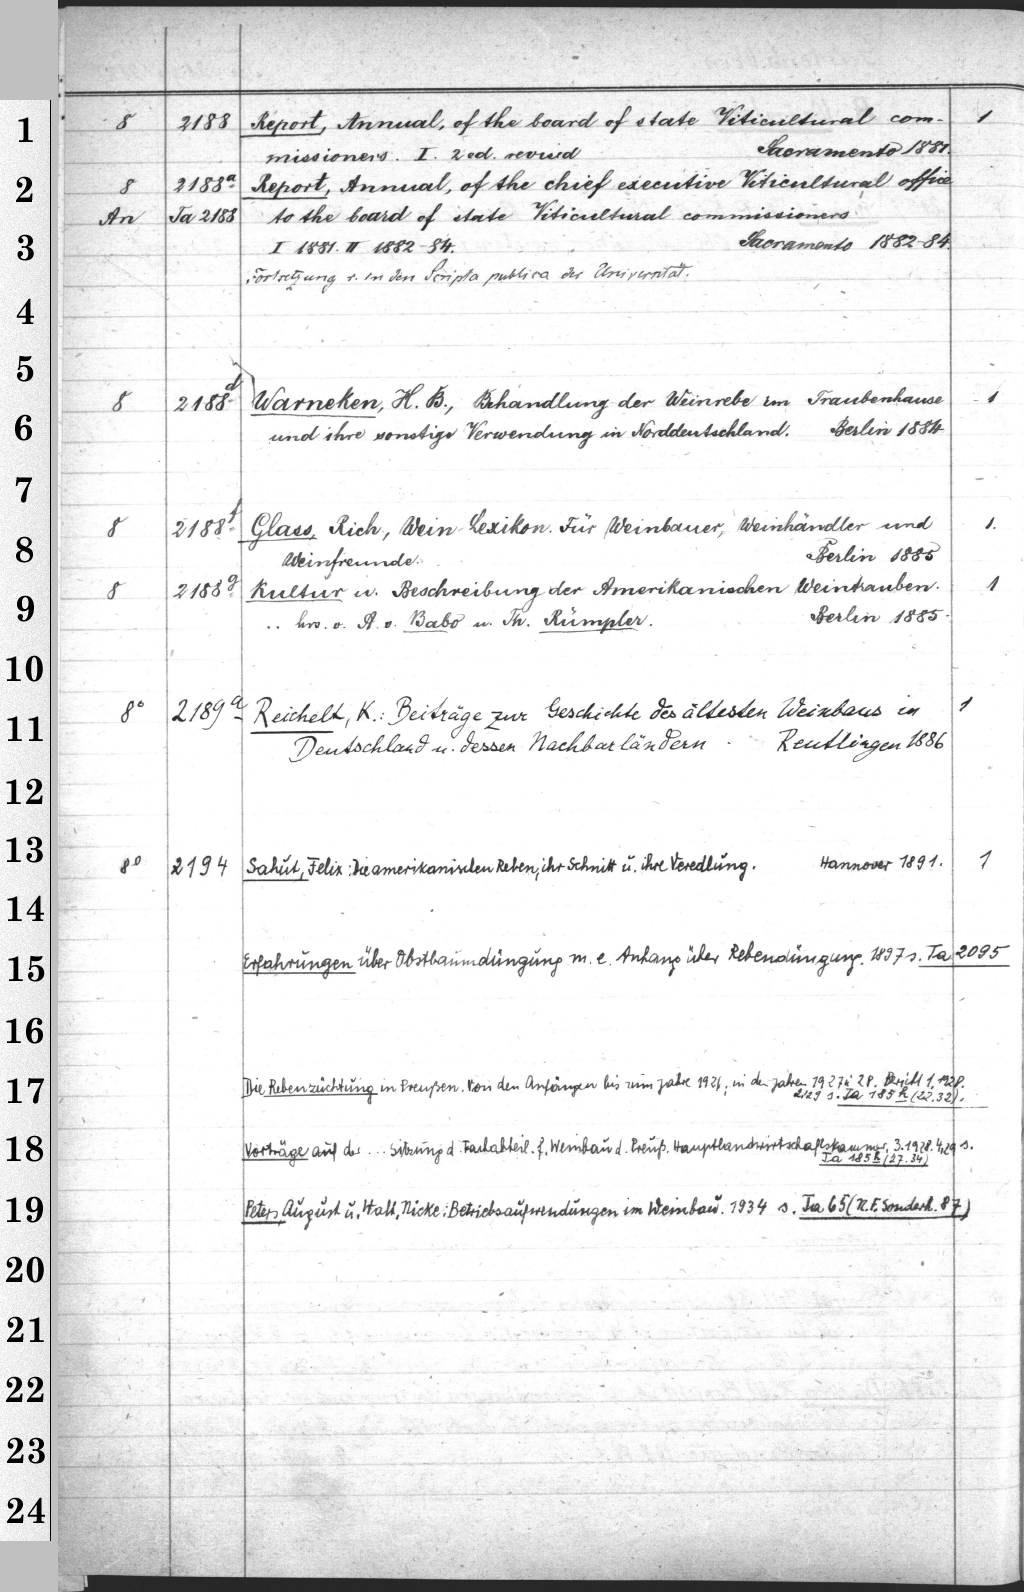 1
8 2188 Report, Annual, of the board of state Viticultural com- 1
missioners. I. 2 ed. revised Sacramento 1881.
2
8 2188a Report, Annual, of the chief executive Viticultural office
An Ta 2188 to the board of state Viticultural commissioners
3
I 1881. II 1882-84. Sacramento 1882-84.
Fortsetzung s. in den Scripta publica der Universität.
4
5
8 2188d Warneken, H. B., Behandlung der Weinrebe im Traubenhause 1
6
und ihre sonstige Verwendung in Norddeutschland. Berlin 1884
7
8 2188f Glass, Rich, Wein-Lexikon. Für Weinbauer, Weinhändler und 1.
8
Weinfreunde. Berlin 1885
8 2188g Kultur u. Beschreibung der Amerikanischen Weintrauben. 1
9
.. hrs. v. A. v. Babo u. Th. Rümpler. Berlin 1885
10
8° 2189a Reichelt, K.: Beiträge zur Geschichte des ältesten Weinbaus in 1
11
Deutschland u. dessen Nachbarländern. Reutlingen 1886
12
13
8° 2194 Sahut, Felix: Die amerikanischen Reben, ihr Schnitt u. ihre Veredlung. Hannover 1891. 1
14
Erfahrungen über Obstbaumdüngung m. e. Anhang über Rebendüngung. 1897 s. Ta 2095
15
16
17
Die Rebenzüchtung in Preußen. Von den Anfängen bis zum Jahre 1926, in den Jahren 1927 u 28. Bericht 1. 1928.
2.129 s. Ta 185h (22.32).
18
Vorträge auf der ... Sitzung d. Fachabteil. f. Weinbau d. Preuß. Hauptlandwirtschaftskammer. 3.1928. 4,29 s.
Ta 185h (27.34)
19
Peters, August u. Hatt, Nicke: Betriebsaufwendungen im Weinbau. 1934 s. Ta 65 (N.F. Sonderh. 87)
20
21
22
23
24